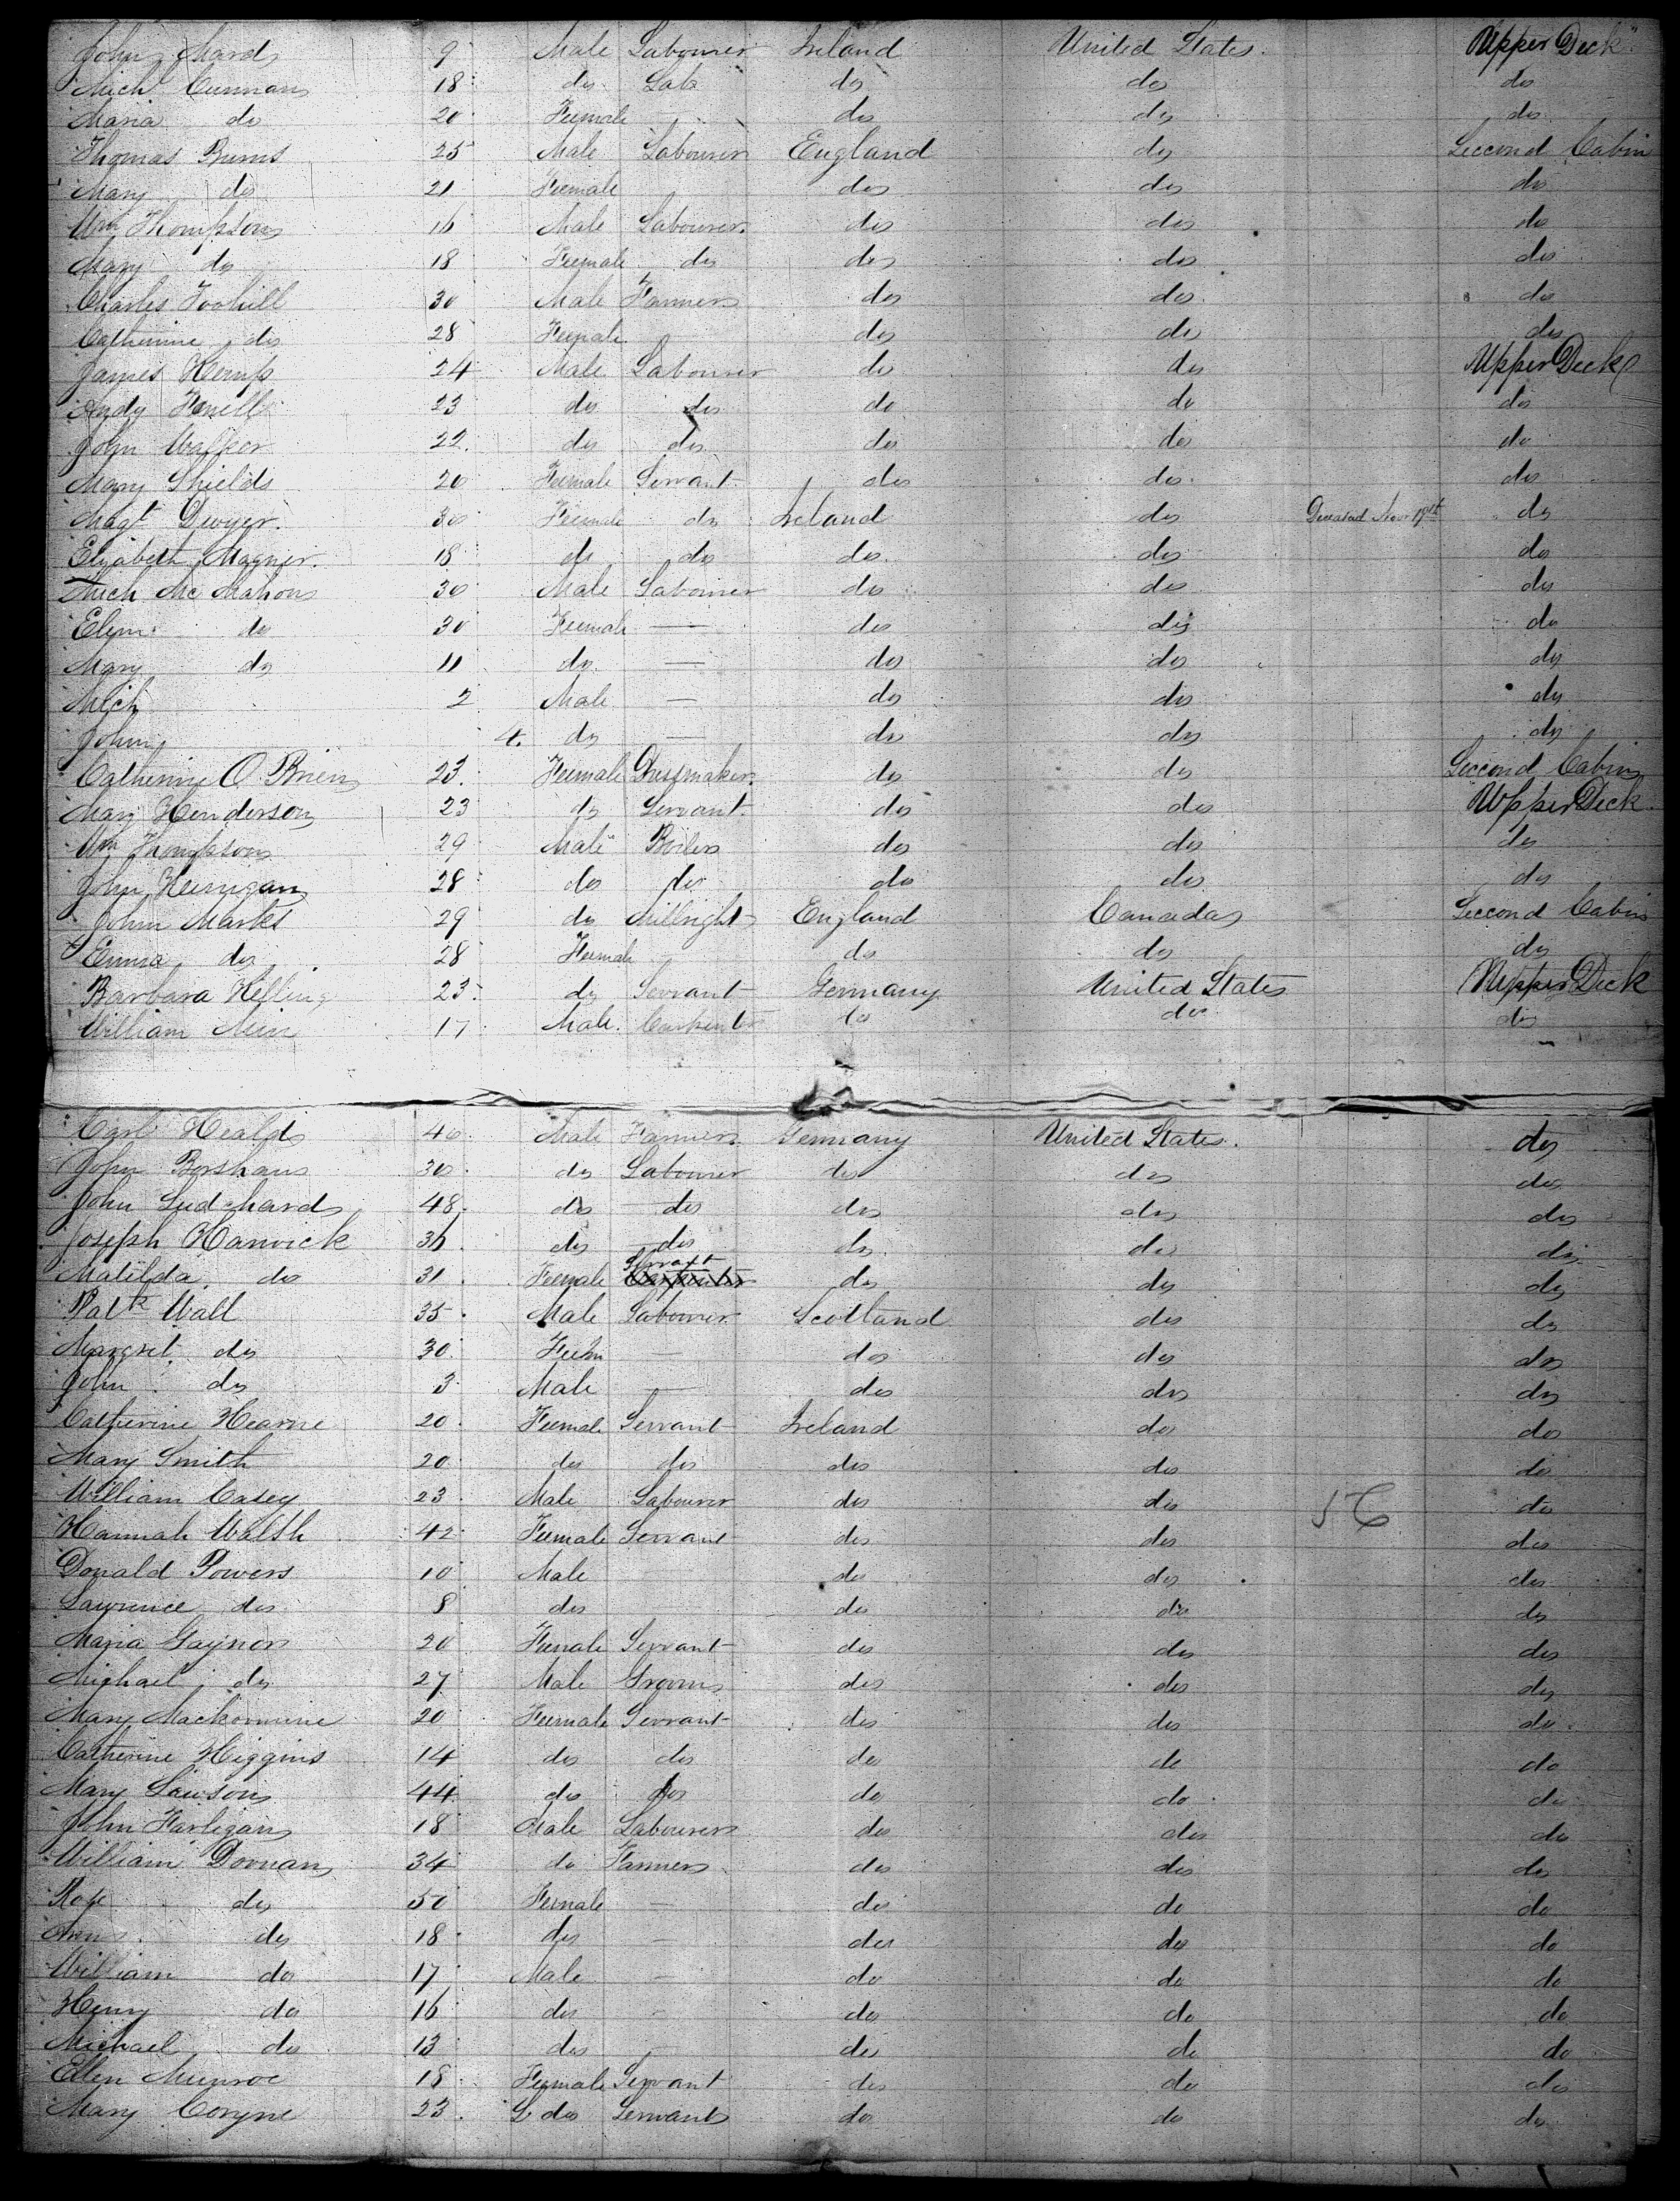 John Mard 9 Male Labourer Ireland United States Upper Deck
Mich Cunnan 18 do Lab do do do
Maria do 20 Female do do do
Thomas Burns 25 Male Labourer England do Second Cabin
Mary do 21 Female do do do
Wm Thompson 16 Male Labourer do do do
Mary do 18 Female do do do do
Charles Toohill 30 Male Farmer do do do
Catherine do 28 Female do do do
James Kemp 24 Male Labourer do do Upper Deck
Andy 23 do do do do do
John Walker 22 do do do do do
Mary Shields 20 Female Servant do do do
Magt Dwyer 30 Female do Ireland do Deceased Novr do
Elizabeth Magner 18 do do do do do
Mich Mc Mahon 30 Male Labourer do do do
Elen do 30 Female — do do do
Mary do 11 do — do do do
Mich 2 Male — do do do
John 4 do — do do do
Catherine O Brien 23 Female Dressmaker do do Second Cabin
Mary Henderson 23 do Servant do do Upper Deck
Wm Thompson 29 Male Boiler do do do
John Kerrigan 28 do do do do do
John Marks 29 do Millright England Canada Second Cabin
Emma do 28 Female do do do
Barbara Helling 23 do Servant Germany United States Upper Deck
William 17 Male Carpenter do do do
Carl Heald 40 Male Farmer Germany United States do
John Borshaus 30 do Labourer do do do
John Ludchard 48 do do do do do
Joseph Harwick 36 do do do do do
Matilda do 31 Female Servant do do do
Patk Wall 35 Male Labourer Scotland do do
Margret do 30 Fem — do do do
John do 3 Male — do do do
Catherine Hearne 20 Female Servant Ireland do do
Mary Smith 20 do do do do do
William Casey 23 Male Labourer do do do
Hannah Walsh 42 Female Servant do do do
Donald Powers 10 Male do do do
Lawrence do 8 do do do do
Maria Gaynor 20 Female Servant do do do
Michael do 27 Male Groom do do do
Mary Mackormine 20 Female Servant do do do
Catherine Higgins 14 do do do do do
Mary Lawson 44 do do do do do
John Harligan 18 Male Labourer do do do
William Doonan 34 do Farmer do do do
Rose do 50 Female — do do do
Ann do 18 do — do do do
William do 17 Male — do do do
Henry do 16 do - do do do
Michael do 13 do do do do
Ellen Munroe 18 Female Servant do do do
Mary Coryne 23 do Servant do do do